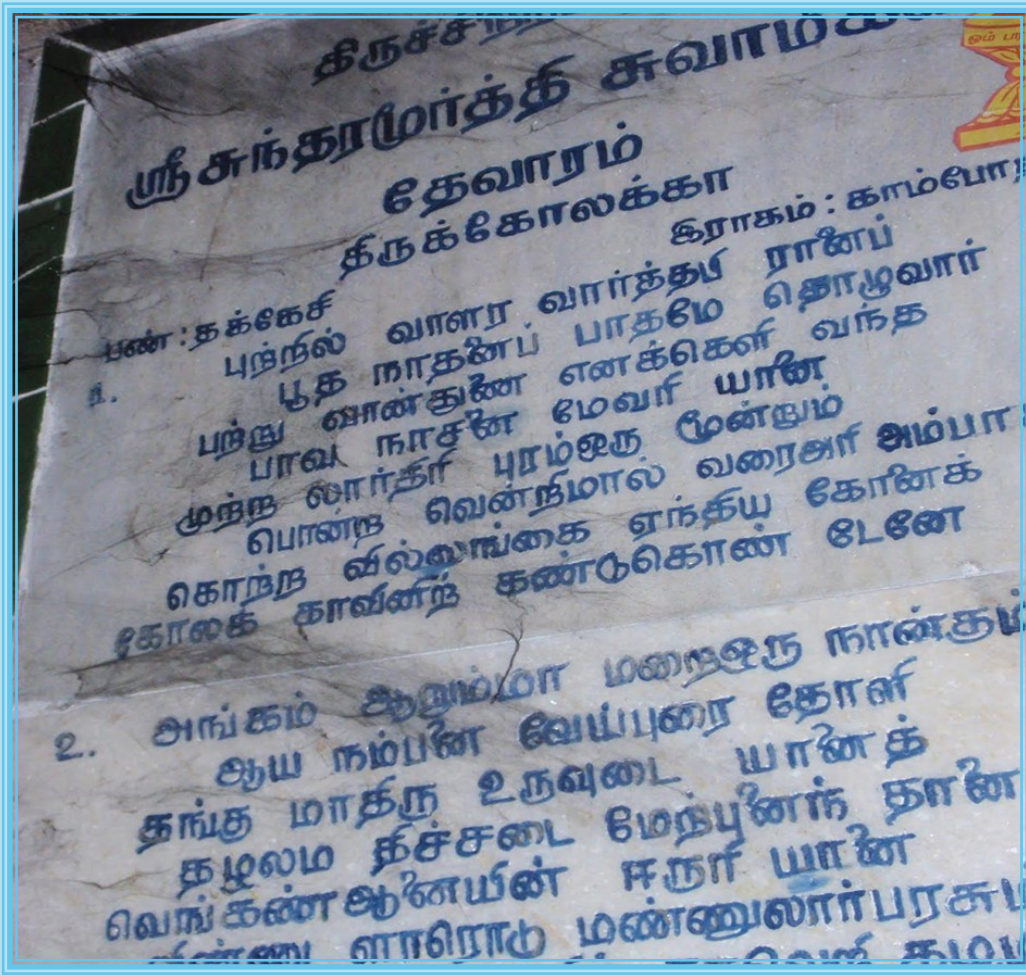 ஓம்
ஸ்ரீ சுந்தரமூர்த்தி
தேவாரம்
திருக்கோலக்கா
இராகம் :
பண் : தக்கேசி
1. புற்றில் வாளர வார்த்தபி ரானைப்
பூத நாதனைப் பாதமே தொழுவார்
பற்று வான்துணை எனக்கெளி வந்த
பாவ நாசனை மேவரி யானை
முற்ற லார்திரி புரம்ஒரு மூன்றும்
பொன்ற வென்றிமால் வரைஅரி அம்பா
கொற்ற வில்அங்கை ஏந்திய கோனைக்
கோலக் காவினிற் கண்டுகொண் டேனே
2. அங்கம் ஆறும்மா மறைஒரு நான்கும்
ஆய நம்பனை வேய்புரை தோளி
தங்கு மாதிரு உருவுடை யானைத்
தழலம திச்சடை மேற்புனைந் தானை
வெங்கண்ஆனையின் ஈருரி யானை
ளாரொடு மண்ணுலார்பரசு